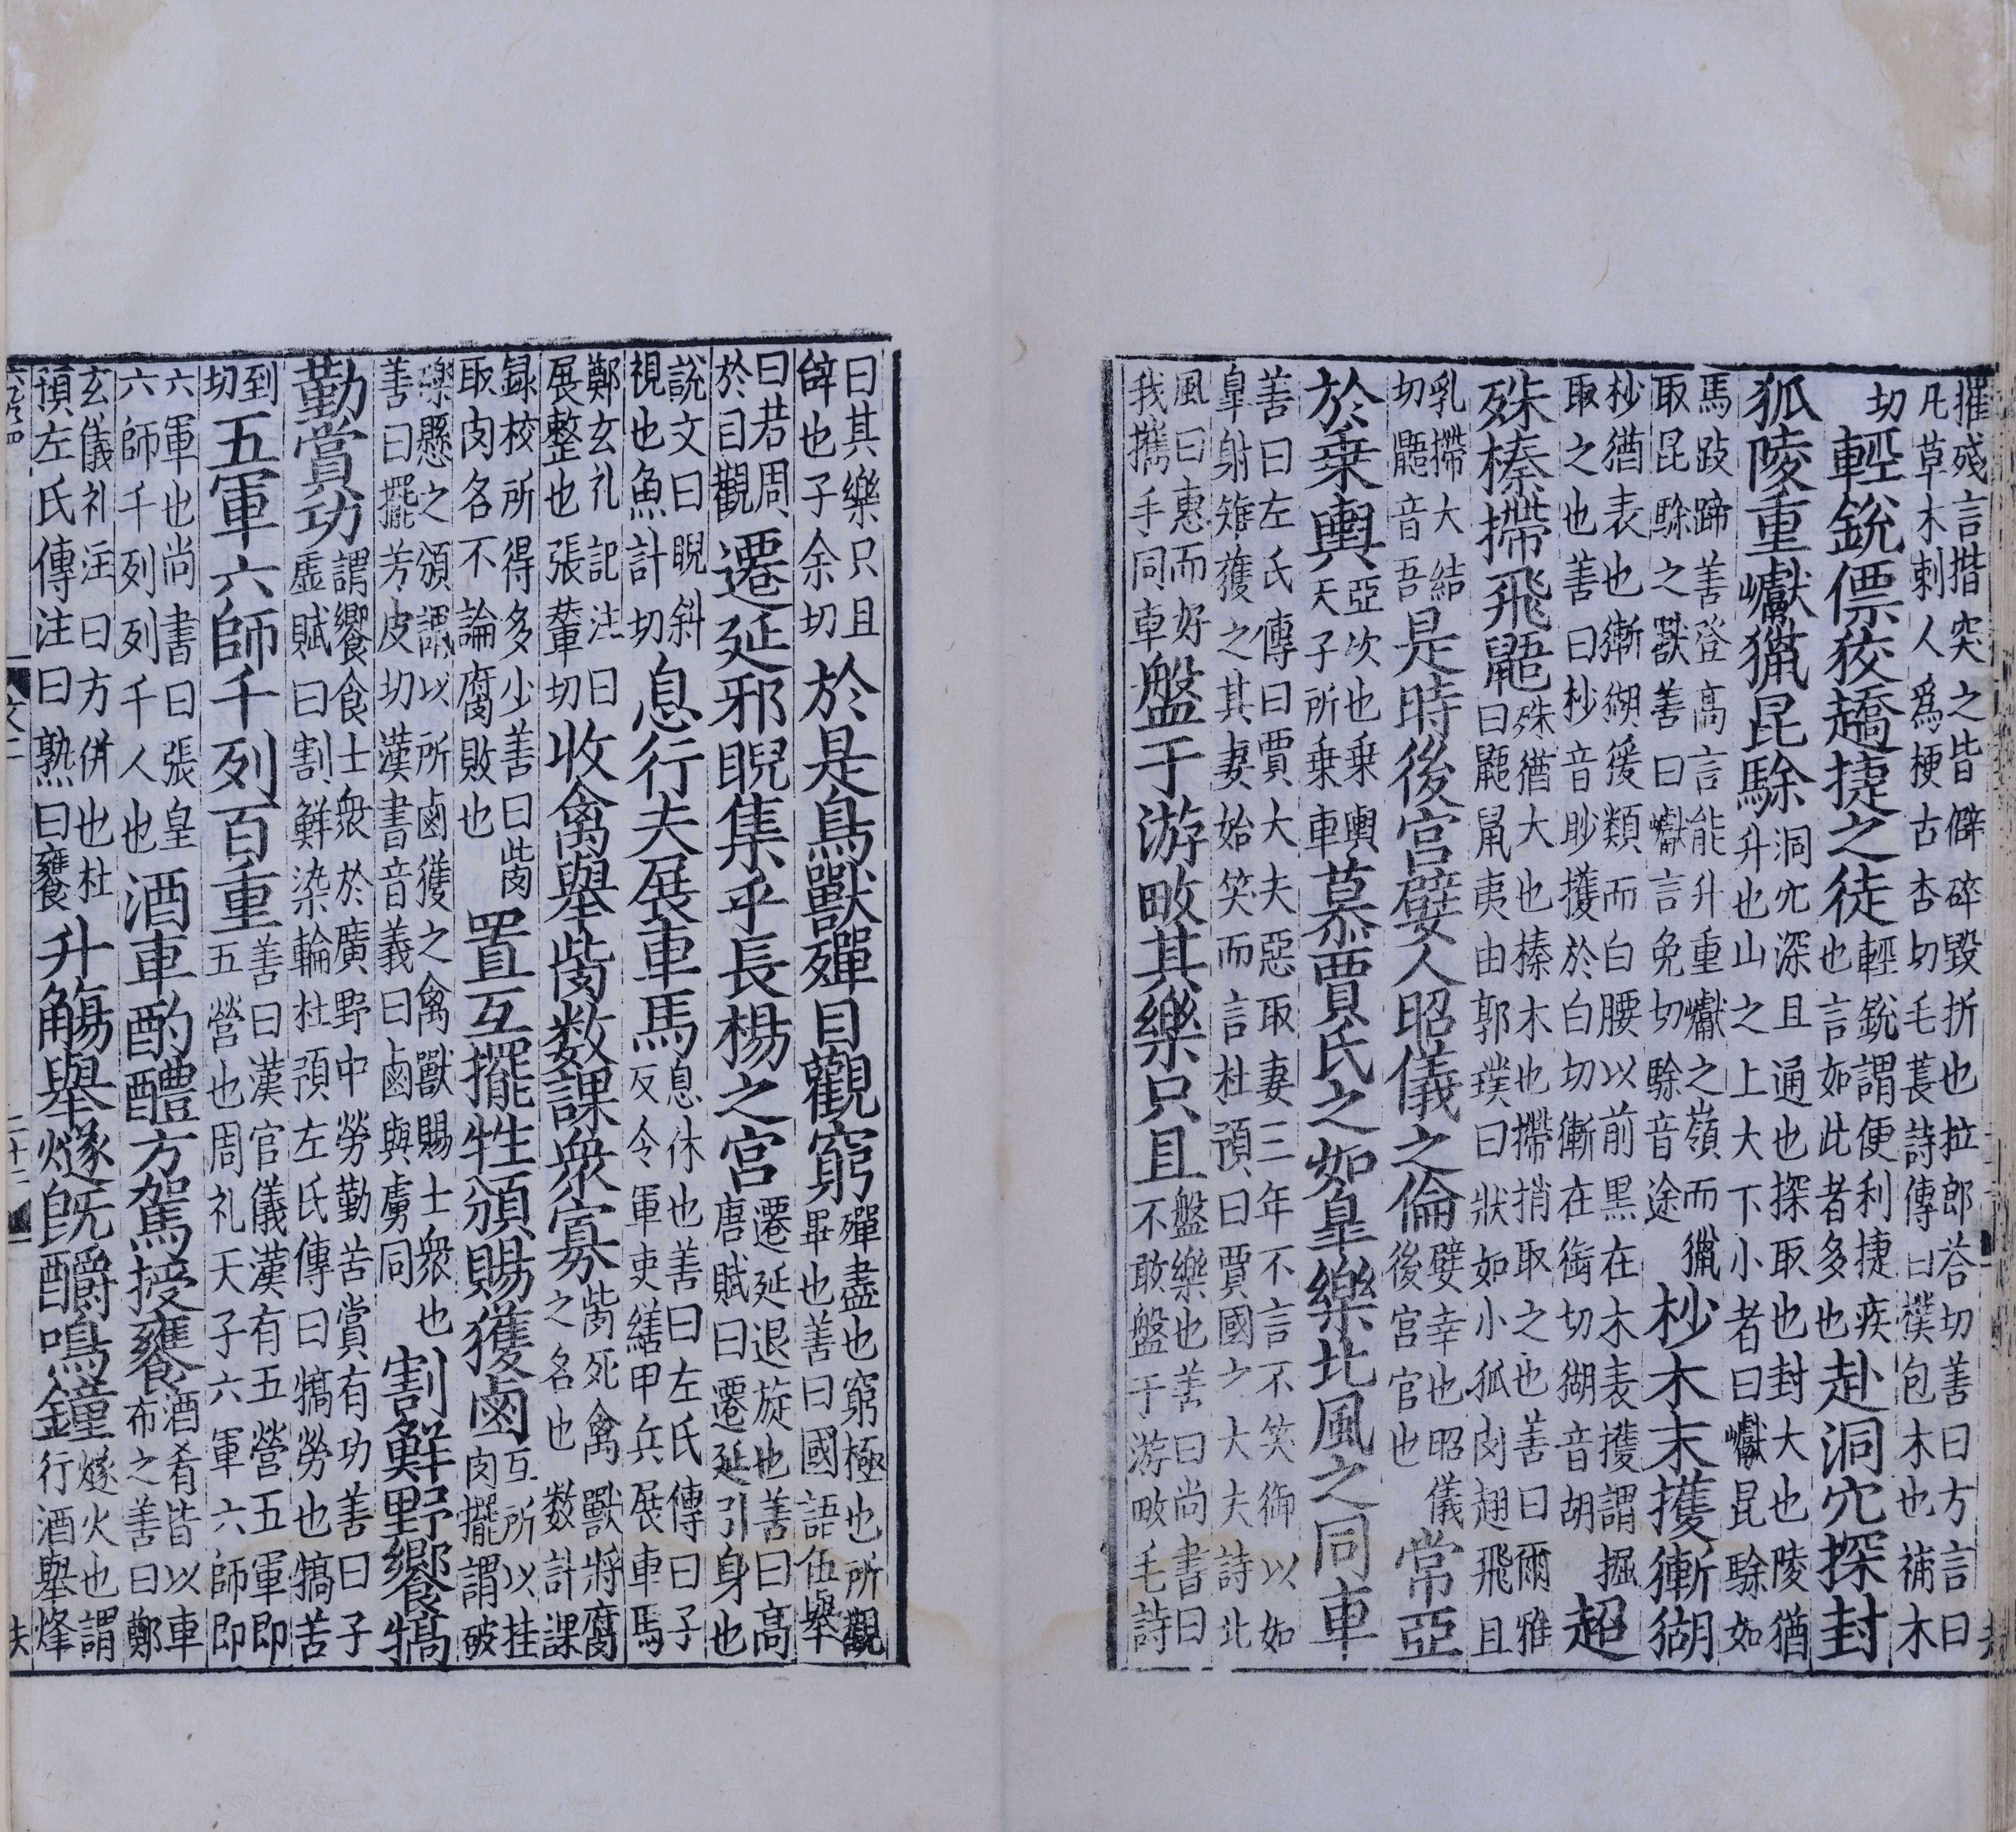 摧殘言揩突之皆僻碎毀折也拉郎荅切善曰方言曰
凡草木刺人爲梗古杏切毛萇詩傳曰樸包木也補木
切輕銳僄狡趫捷之徒輕銳謂便利捷疾也言如此者多也赴洞穴探封
狐陵重巘獵昆駼洞穴深且通也探取也封大也陵猶升也山之上大下小者曰巘昆駼如
馬跂蹄善登高言能升重巘之嶺而獵取昆駼之獸善曰巘言免切駼音途杪木末擭獑猢
杪猶表也獑猢猨類而白腰以前黑在木表擭謂掘取之也善曰杪音眇擭於白切獑在銜切猢音胡超
殊榛摕飛鼯殊猶大也榛木也摕捎取之也善曰爾雅曰鼯鼠夷由郭璞曰狀如小狐肉翅飛且
乳摕大結切鼯音吾是時後宮嬖人昭儀之倫嬖幸也昭儀後宮官也常亞
於乗輿亞次也乗輿天子所乗車慕賈氏之如皐樂北風之同車
善曰左氏傳曰賈大夫惡取妻三年不言不笑御以如皐射雉獲之其妻始笑而言杜預曰賈國之大夫詩北
風曰惠而好我攜手同車盤于游畋其樂只且盤樂也善曰尚書曰不敢盤于游畋毛詩
曰其樂只且辞也子余切於是鳥獸殫目觀窮殫盡也窮極也所觀畢也善曰國語伍舉
曰若周於目觀遷延邪睨集乎長楊之宮遷延退旋也善曰高唐賦曰遷延引身也
說文曰睨斜視也魚計切息行夫展車馬息休也善曰左氏傳曰子反令軍吏繕甲兵展車馬
鄭玄礼記注曰展整也張輦切收禽舉胔数課衆寡胔死禽獸將腐之名也数計課
録校所得多少善曰胔取肉名不論腐敗也置互擺牲頒賜獲鹵互所以挂肉擺謂破
磔懸之頒謂以所鹵獲之禽獸賜士衆也善曰擺芳皮切漢書音義曰鹵與虜同割鮮野饗犒
勤賞功謂饗食士衆於廣野中勞勤苦賞有功善曰子虛賦曰割鮮染輪杜預左氏傳曰犒勞也犒苦
到切五軍六師千列百重善曰漢官儀漢有五營五軍即五營也周礼天子六軍六師即
六軍也尚書曰張皇六師千列列千人也酒車酌醴方駕授饔酒肴皆以車布之善曰鄭
玄儀礼注曰方併也杜預左氏傳注曰熟曰饔升觴舉燧旣釂鳴鐘燧火也謂行酒舉烽
文二
二十二